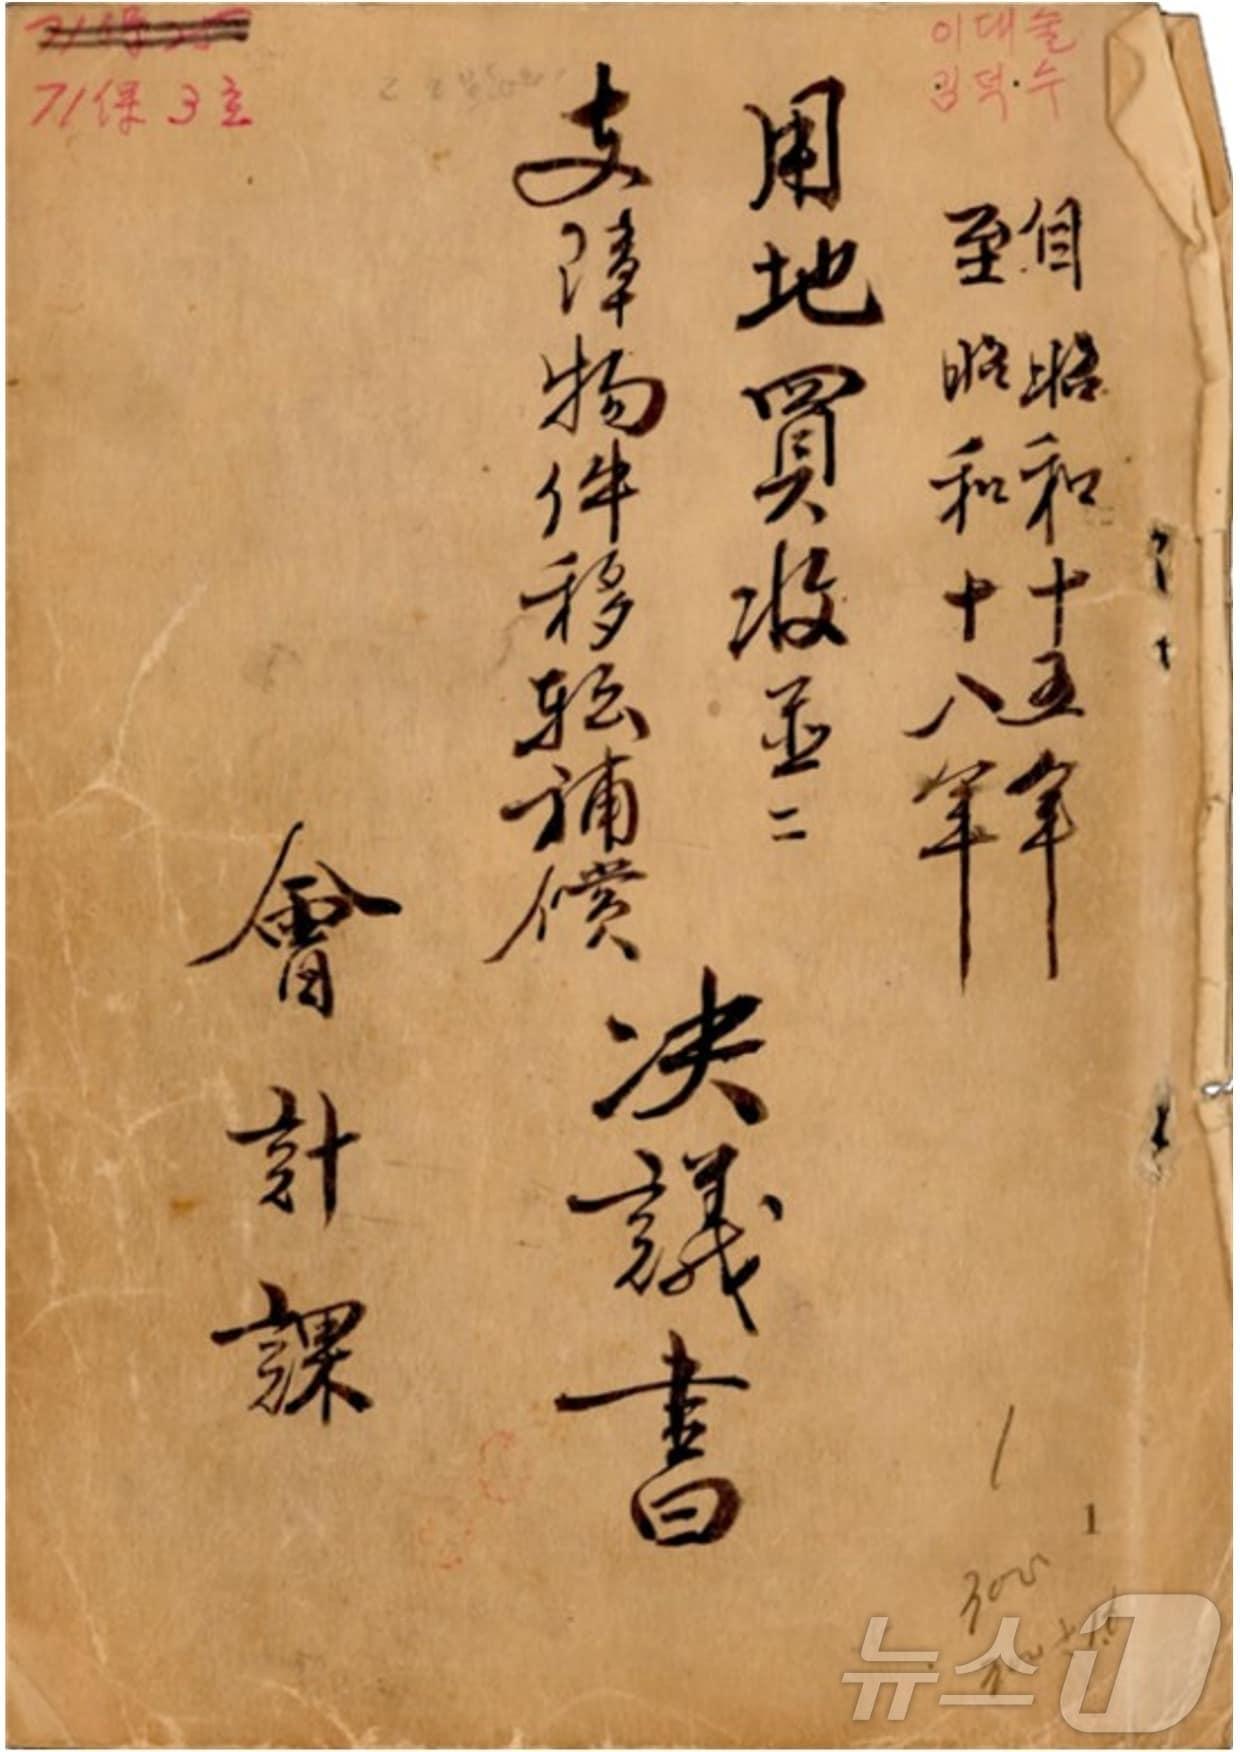 71保3호
이대술
김덕수
自昭和十五年
至昭和十八年
用地買收並ニ
支障物件移転補償
決議書
會計課
1
뉴스1